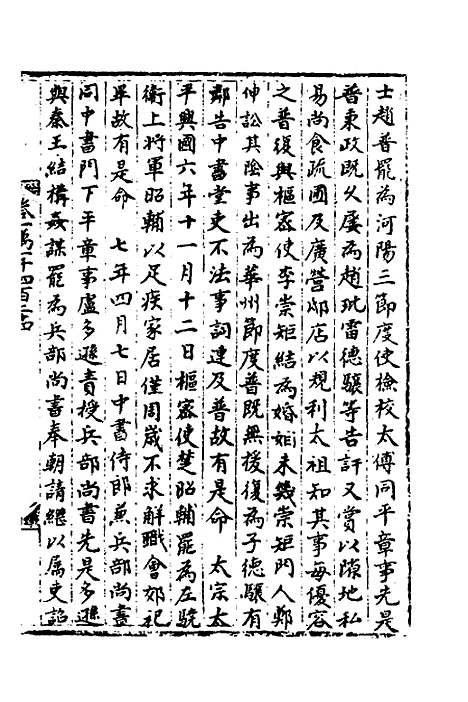 士趙普罷為河陽三節度使檢校太傅同平章事先是
普秉政既久屢為趙玭雷德驤等告訐又嘗以隙地私
易尚食疏圃及廣營邸店以規利太祖知其事每優容
之普復與樞密使李崇矩結為婚姻未幾崇矩門人鄭
伸訟其陰事出為華州節度普既無援復為子德驤有
鄰告中書堂吏不法事詞連及普故有是命　太宗太
平興國六年十一月十二日樞密使楚昭輔罷為左驍
衛上將軍昭輔以足疾家居僅周歲不求解職會郊祀
畢故有是命　七年四月七日中書侍郎兼兵部尚書
同中書門下平章事盧多遜責授兵部尚書先是多遜
與秦王結構姦謀罷為兵部尚書奉朝請繼以屬吏詔
卷一萬一千四百